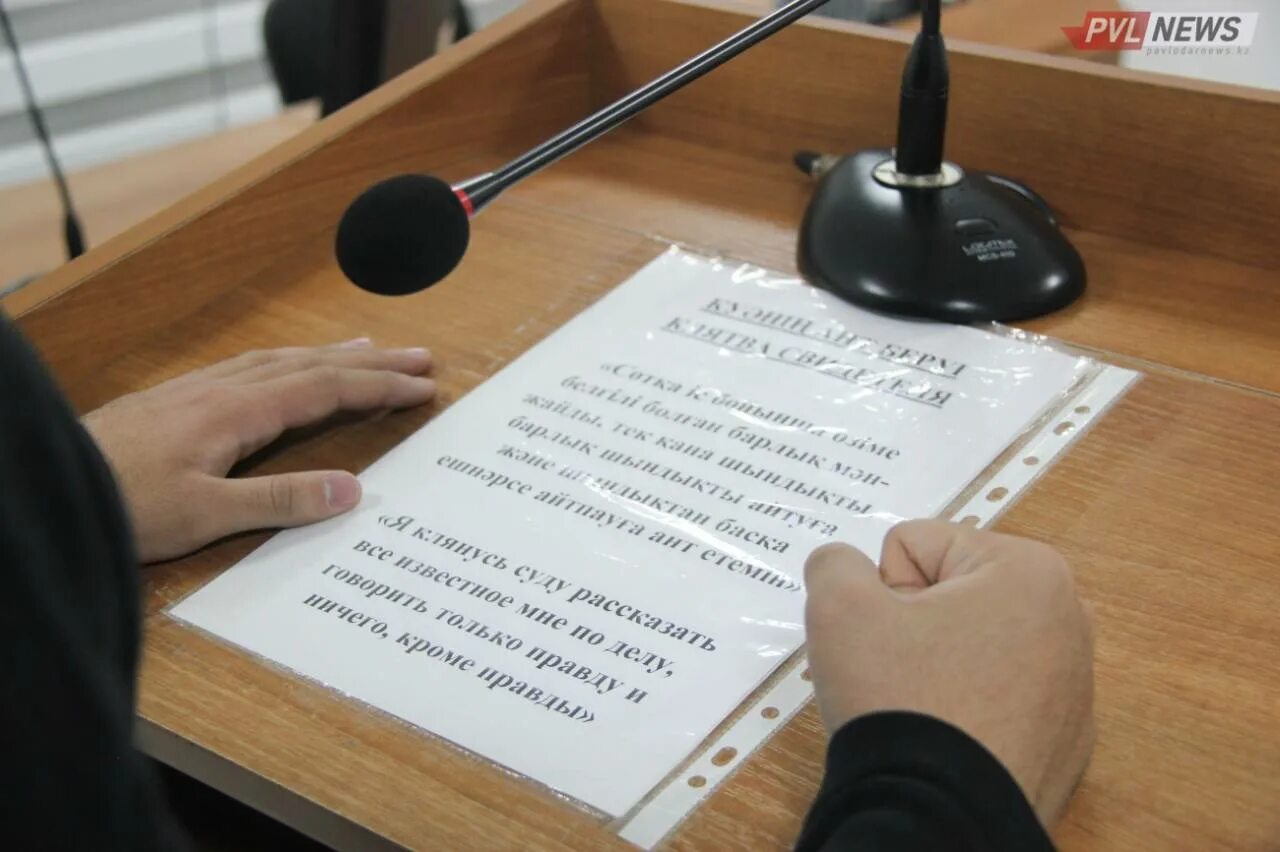 PVL NEWS
pavlodarnews.kz
КУӘНІҢ АНТ БЕРУІ
КЛЯТВА СВИДЕТЕЛЯ
«Сотқа іс бойынша өзіме
белгілі болған барлық мән-
жайды, тек қана шындықты
барлық шындықты айтуға
және шындықтан басқа
ешнәрсе айтпауға ант етемін»
«Я клянусь суду рассказать
все известное мне по делу,
говорить только правду и
ничего, кроме правды»